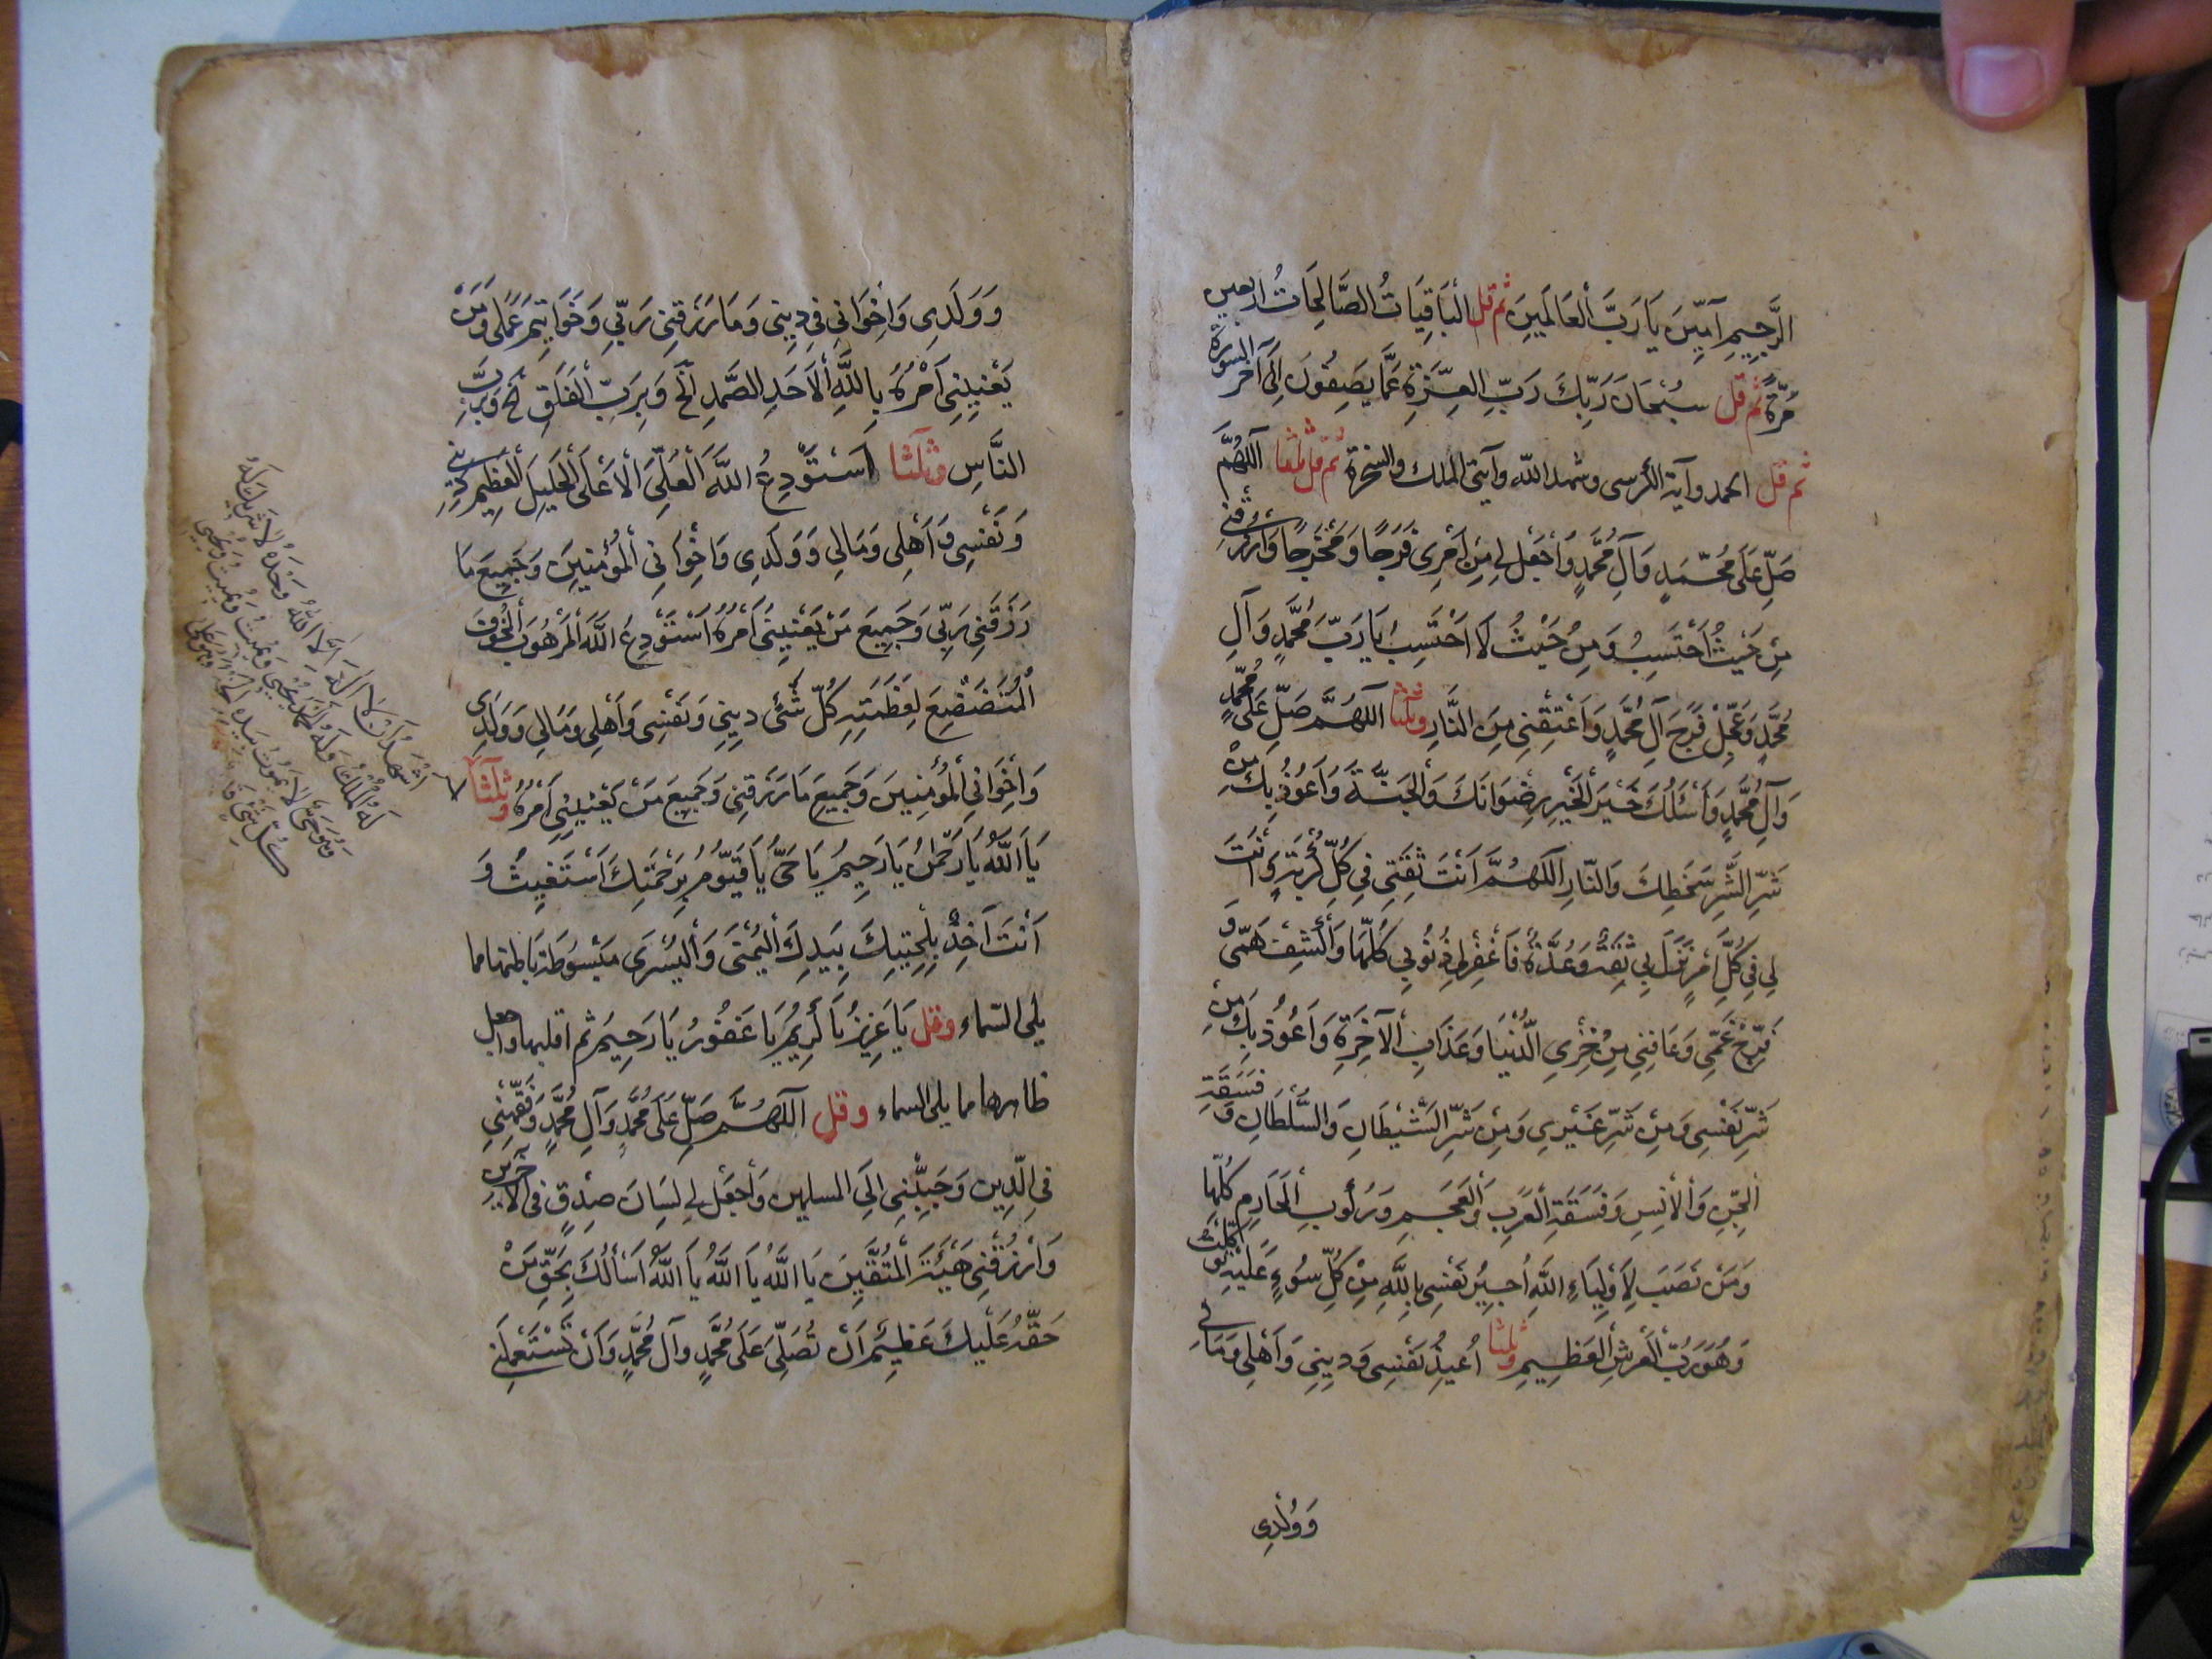 الرَّجِيمِ آمِينَ يَا رَبَّ الْعَالَمِينَ ثم قل الْبَاقِيَاتُ الصَّالِحَاتُ اربعين
مَرّة ثم قل سُبْحَانَ رَبِّكَ رَبِّ الْعِزَّةِ عَمَّا يَصِفُونَ اِلَى آخر السورة
ثم قل الحمد وآية الكرسى وشهد الله وآية الملك والسخرة ثم قل ثلثا اَللّهُمَّ
صَلِّ عَلَى مُحَمَّدٍ وَآلِ مُحَمَّدٍ وَاجْعَلْ لِي مِنْ اَمْرِى فَرَجًا وَمَخْرَجًا وَارْزُقْنِي
مِنْ حَيْثُ اَحْتَسِبُ وَمِنْ حَيْثُ لَا اَحْتَسِبُ يَا رَبَّ مُحَمَّدٍ وَآلِ
مُحَمَّدٍ وَعَجِّلْ فَرَجَ آلِ مُحَمَّدٍ وَاَعْتِقْنِي مِنَ النَّارِ وثلثا اَللّهُمَّ صَلِّ عَلَى مُحَمَّدٍ
وَآلِ مُحَمَّدٍ وَاَسْئَلُكَ خَيْرَ الْخَيْرِ رِضْوَانَكَ وَالْجَنَّةَ وَاَعُوذُ بِكَ مِنْ
شَرِّ الشَّرِّ سَخَطِكَ وَالنَّارِ اَللّهُمَّ اَنْتَ ثِقَتِي فِي كُلِّ كُرْبَةٍ وَاَنْتَ
لِي فِي كُلِّ اَمْرٍ نَزَلَ بِي ثِقَةٌ وَعُدَّةٌ فَاغْفِرْ لِي ذُنُوبِي كُلَّهَا وَاكْشِفْ هَمِّى وَ
فَرِّجْ غَمِّى وَعَافِنِي مِنْ خِزْىِ الدُّنْيَا وَعَذَابِ الْآخِرَةِ وَاَعُوذُ بِكَ مِنْ
شَرِّ نَفْسِى وَمِنْ شَرِّ غَيْرِي وَمِنْ شَرِّ الشَّيْطَانِ وَالسُّلْطَانِ وَ فَسَقَةِ
الْجِنِّ وَالْاِنْسِ وَفَسَقَةِ الْعَرَبِ وَالْعَجَمِ وَرُكُوبِ الْمَحَارِمِ كُلِّهَا
وَمَنْ نَصَبَ لِاَوْلِيَاءِ اللَّهِ اُجِيرُ نَفْسِى بِاللَّهِ مِنْ كُلِّ سُوءٍ عَلَيْهِ تَوَكَّلْتُ
وَهُوَ رَبُّ الْعَرْشِ الْعَظِيمِ وثلثا اُعِيذُ نَفْسِى وَدِينِي وَاَهْلِي وَمَالِي
وَوُلْدِى
وَوَلَدِى وَاِخْوَانِي فِي دِينِي وَمَا رَزَقَنِي رَبِّي وَخَوَاتِيمَ عَمَلِي وَمَنْ
يَعْنِينِي اَمْرُهُ بِاللَّهِ الْاَحَدِ الصَّمَدِ الخ وَبِرَبِّ الْفَلَقِ الخ وَبِرَبِّ
النَّاسِ وثلثا اَسْتَوْدِعُ اللَّهَ الْعَلِىَّ الْاَعْلَى الْجَلِيلَ الْعَظِيمَ دِينِي
وَنَفْسِى وَاَهْلِى وَمَالِي وَوَلَدِى وَاِخْوَانِي الْمُؤْمِنِينَ وَجَمِيعَ مَا
رَزَقَنِي رَبِّي وَجَمِيعَ مَنْ يَعْنِينِي اَمْرُهُ اَسْتَوْدِعُ اللَّهَ الْمَرْهُوبَ الْمَخُوفَ
الْمُتَضَعْضِعَ لِعَظَمَتِهِ كُلُّ شَىْءٍ دِينِي وَنَفْسِى وَاَهْلِي وَمَالِي وَوَلَدِى
وَاِخْوَانِي الْمُؤْمِنِينَ وَجَمِيعَ مَا رَزَقَنِي وَجَمِيعَ مَنْ يَعْنِينِي اَمْرُهُ وثلثا
يَا اَللَّهُ يَا رَحْمنُ يَا رَحِيمُ يَا حَىُّ يَا قَيُّومُ بِرَحْمَتِكَ اَسْتَغِيثُ وَ
اَنْتَ آخِذٌ بِلِحْيَتِكَ بِيَدِكَ الْيُمْنَى وَالْيُسْرَى مَبْسُوطَة بَاطنها مما
يلى السّماء وقل يَا عَزِيزُ يَا كَرِيمُ يَا غَفُورُ يَا رَحِيمُ ثم اقلبها واجعل
ظاهرها مما يلى السماء وقل اَللّهُمَّ صَلِّ عَلَى مُحَمَّدٍ وَآلِ مُحَمَّدٍ وَفَقِّهْنِي
فِي الدِّينِ وَحَبِّبْنِي اِلَى المسلمين وَاجْعَلْ لِي لِسَانَ صِدْقٍ فى الآخرين
وَارْزُقْنِي هَيْبَةَ الْمُتَّقِينَ يَا اَللَّهُ يَا اَللَّهُ يَا اَللَّهُ اَسْاَلُكَ بِحَقِّ مَنْ
حَقُّهُ عَلَيْكَ عَظِيمٌ اَنْ تُصَلِّىَ عَلَى مُحَمَّدٍ وآلِ مُحَمَّدٍ وَاَنْ تَسْتَعْمِلَنِي
اَشْهَدُ اَنْ لَا اِلَهَ اِلَّا اللَّهُ وَحْدَهُ لَا شَرِيكَ لَهُ
لَهُ الْمُلْكُ وَلَهُ الْحَمْدُ يُحْيِى وَيُمِيتُ وَيُمِيتُ وَيُحْيِى
وَهُوَ حَىٌّ لَا يَمُوتُ بِيَدِهِ الْخَيْرُ وَهُوَ عَلَى
كُلِّ شَىْءٍ قَدِيرٌ